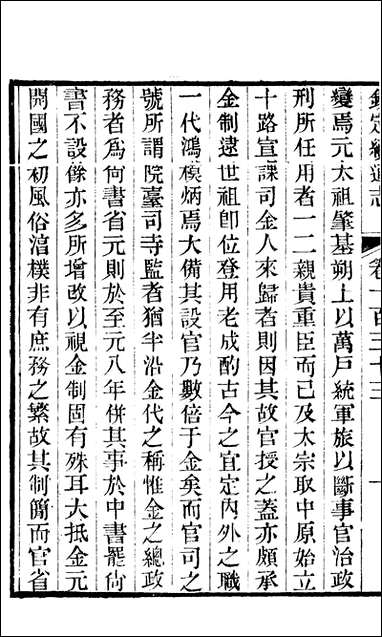 欽定續通志 卷一百三十三
變焉元太祖肇基朔土以萬戶統軍旅以斷事官治政
刑所任用者一二親貴重臣而已及太宗取中原始立
十路宣課司金人來歸者則因其故官授之蓋亦頗承
金制逮世祖卽位登用老成酌古今之宜定內外之職
一代鴻模炳焉大備其設官乃數倍于金矣而官司之
號所謂院臺司寺監者猶半沿金代之稱惟金之總政
務者爲尙書省元則於至元八年併其事於中書罷尙
書不設餘亦多所增改以視金制固有殊耳大抵金元
開國之初風俗湻樸非有庶務之繁故其制簡而官省